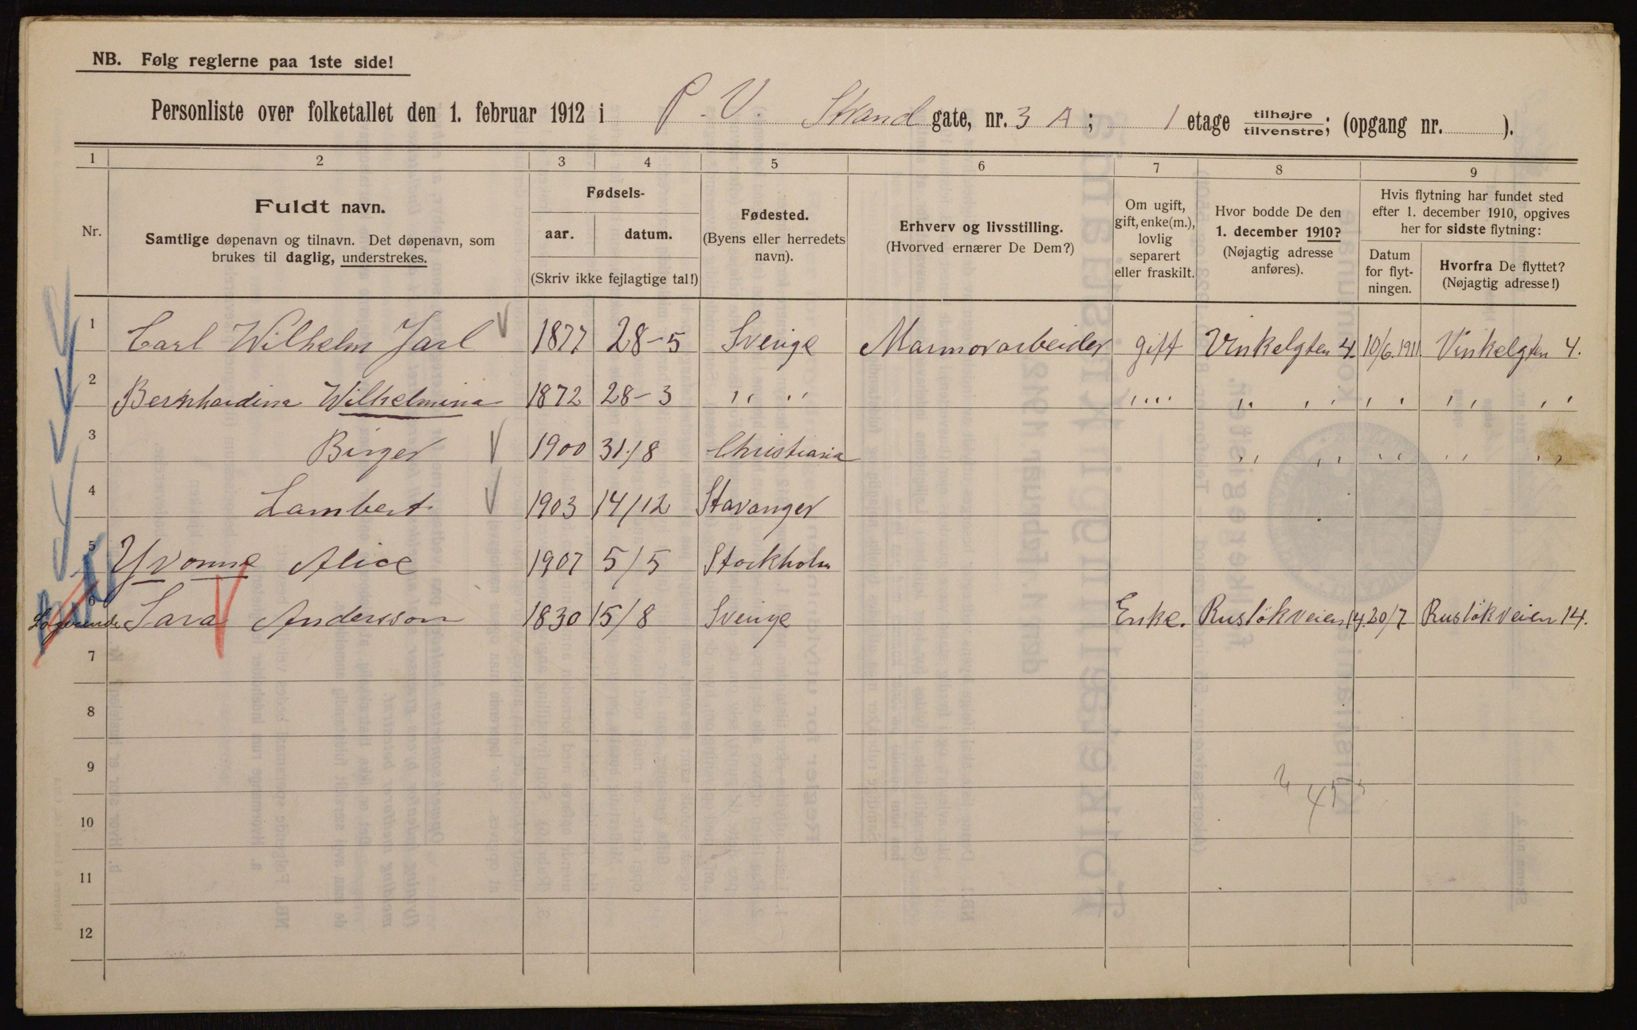 NB. Følg reglerne paa 1ste side!
Personliste over folketallet den 1. februar 1912 i P. V. Strand gate, nr. 3 A; 1 etage tilhøjre/tilvenstre; (opgang nr. ).
1 2 3 4 5 6 7 8 9
Nr.
Fuldt navn.
Samtlige døpenavn og tilnavn. Det døpenavn, som
brukes til daglig, understrekes.
Fødsels-
aar. datum.
(Skriv ikke fejlagtige tal!)
Fødested.
(Byens eller herredets
navn).
Erhverv og livsstilling.
(Hvorved ernærer De Dem?)
Om ugift,
gift, enke(m.),
lovlig
separert
eller fraskilt.
Hvor bodde De den
1. december 1910?
(Nøjagtig adresse
anføres).
Hvis flytning har fundet sted
efter 1. december 1910, opgives
her for sidste flytning:
Datum
for flyt-
ningen.
Hvorfra De flyttet?
(Nøjagtig adresse!)
1 Carl Wilhelm Jarl 1877 28-5 Sverige Marmorarbeider gift Vinkelgten 4. 10/6. 1911 Vinkelgten 4.
2 Bernhardina Wilhelmina 1872 28-3 " " " " " " " " " "
3 Birger 1900 31/8 Christiania " " " " " "
4 Lambert 1903 14/12 Stavanger
5 Yvonne Alice 1907 5/5 Stockholm
6 Logerende Sara Andersson 1830 15/8 Sverige Enke. Rusløkveien 14. 20/7 Rusløkveien 14.
7
8
9
10
11
12